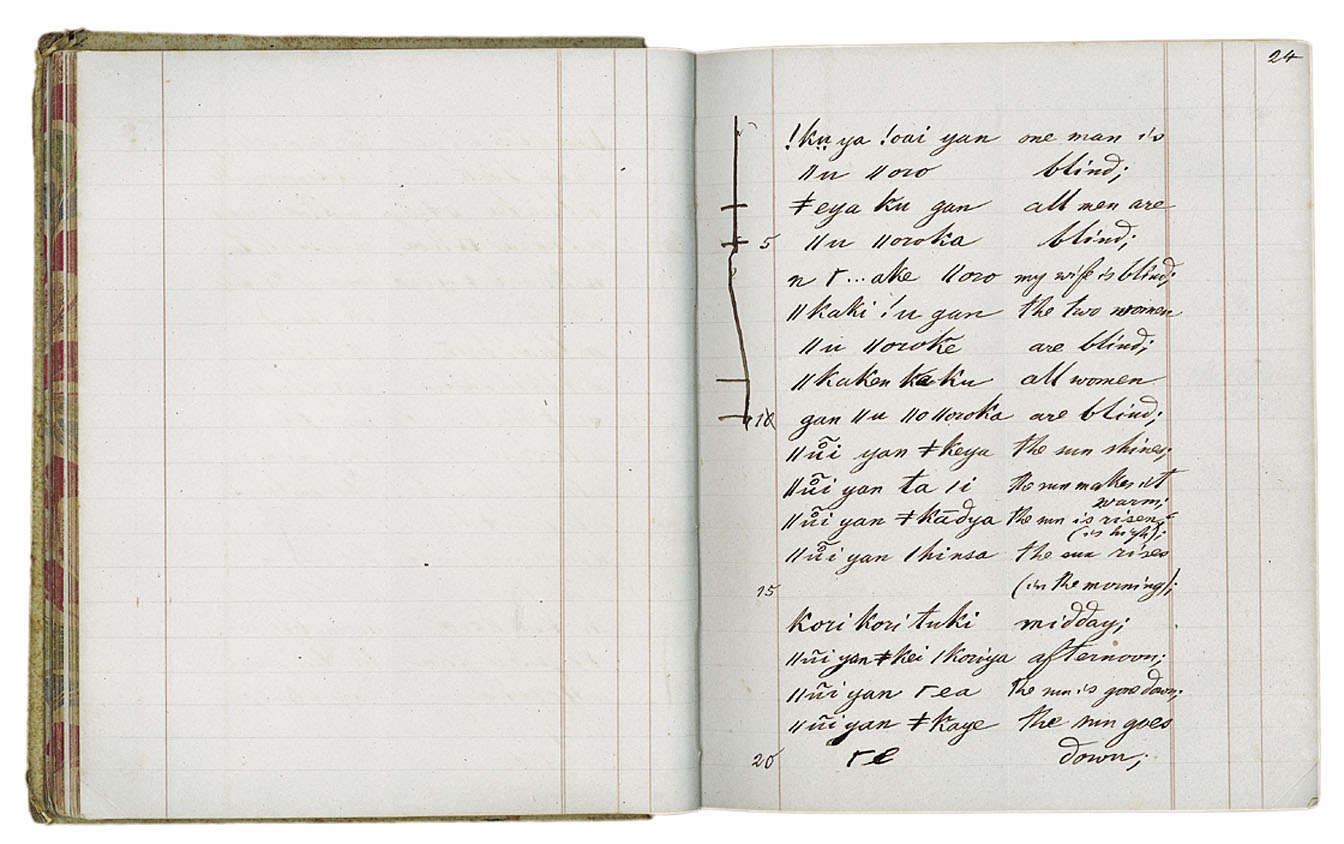 24
!kṳ ya !oai yan one man is
ǁu ǁoro blind;
ǂeya ku gan all men are
5 ǁu ǁoroka blind;
n r...ake ǁoro my wife is blind;
ǁkaki !u gan the two women
ǁu ǁoroke are blind;
ǁkaken ka ku all women
10 gan ǁu ǁo ǁoroka are blind;
ǁũ̊i yan ǂkeya the sun shines;
ǁũ̊i yan ta ǀi the sun makes it
warm;
ǁũ̊i yan ǂkādya the sun is risen,
(is high);
ǁũ̊i yan ǀhinsa the sun rises
15 (in the morning);
Kori kori tuki midday;
ǁũi yan ǂkei ǀkoriya afternoon;
ǁũi yan rea the sun is gone down;
ǁũi yan ǂkaye the sun goes
20 re down;